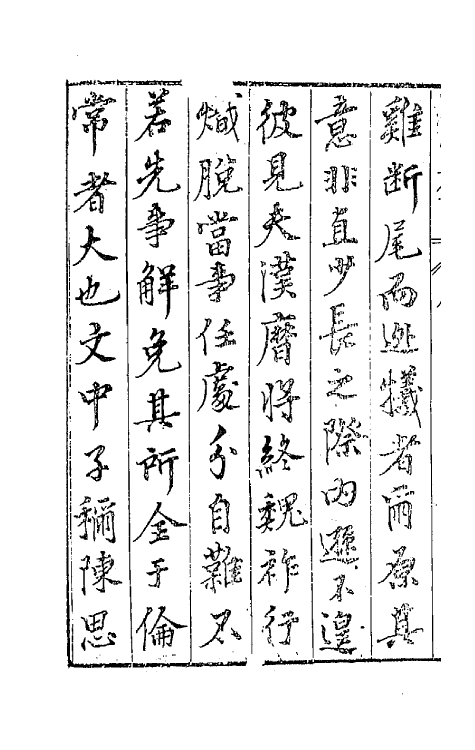 雞斷尾而逃犧者爾原其
意非直少長之際內遜不遑
彼見夫漢曆將終魏祚行
熾脫當事任處分自難不
若先事解免其所全于倫
常者大也文中子稱陳思